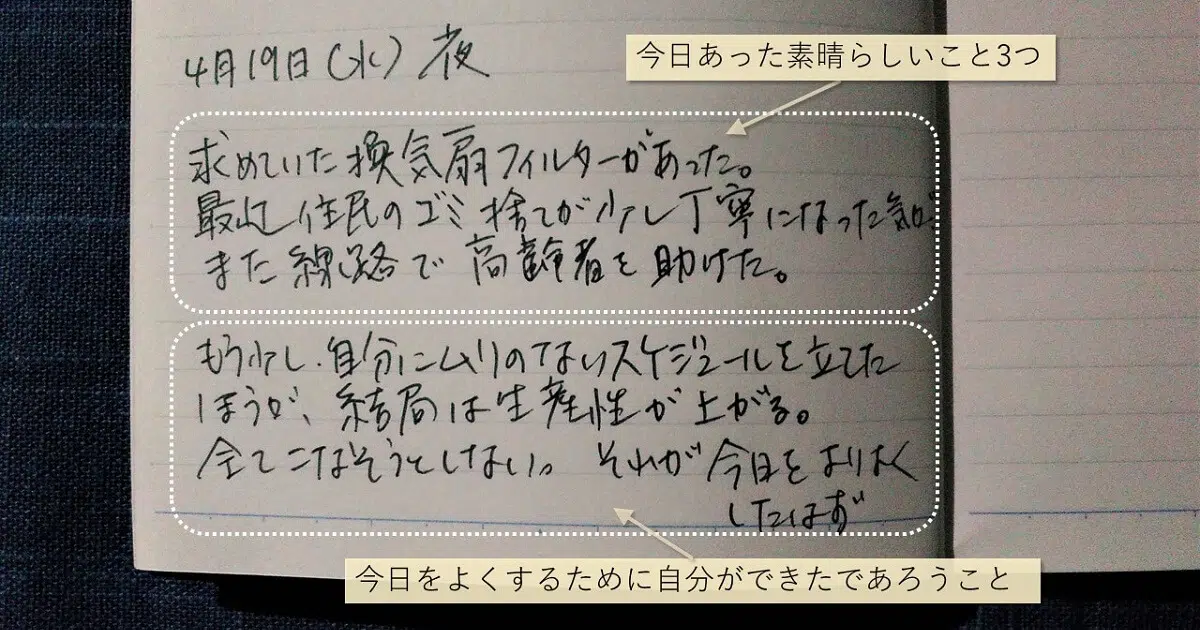 4月19日(水) 夜
今日あった素晴らしいこと3つ
求めていた換気扇フィルターがあった。
最近住民のゴミ捨てが少し丁寧になった気が
また線路で高齢者を助けた。
もう少し、自分にムリのないスケジュールを立てた
ほうが、結局は生産性が上がる。
全てこなそうとしない。 それが今日をよりよく
したはず
今日をよくするために自分ができたであろうこと